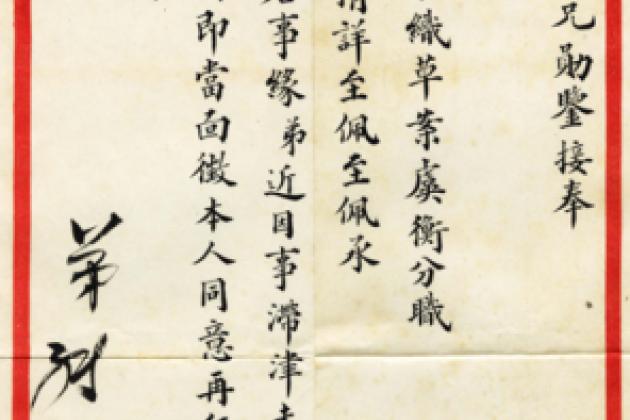 兄勛鑒接奉
織草案虞衡分職
詳至佩至佩承
事緣弟近因事滯津
即當面徵本人同意再
弟